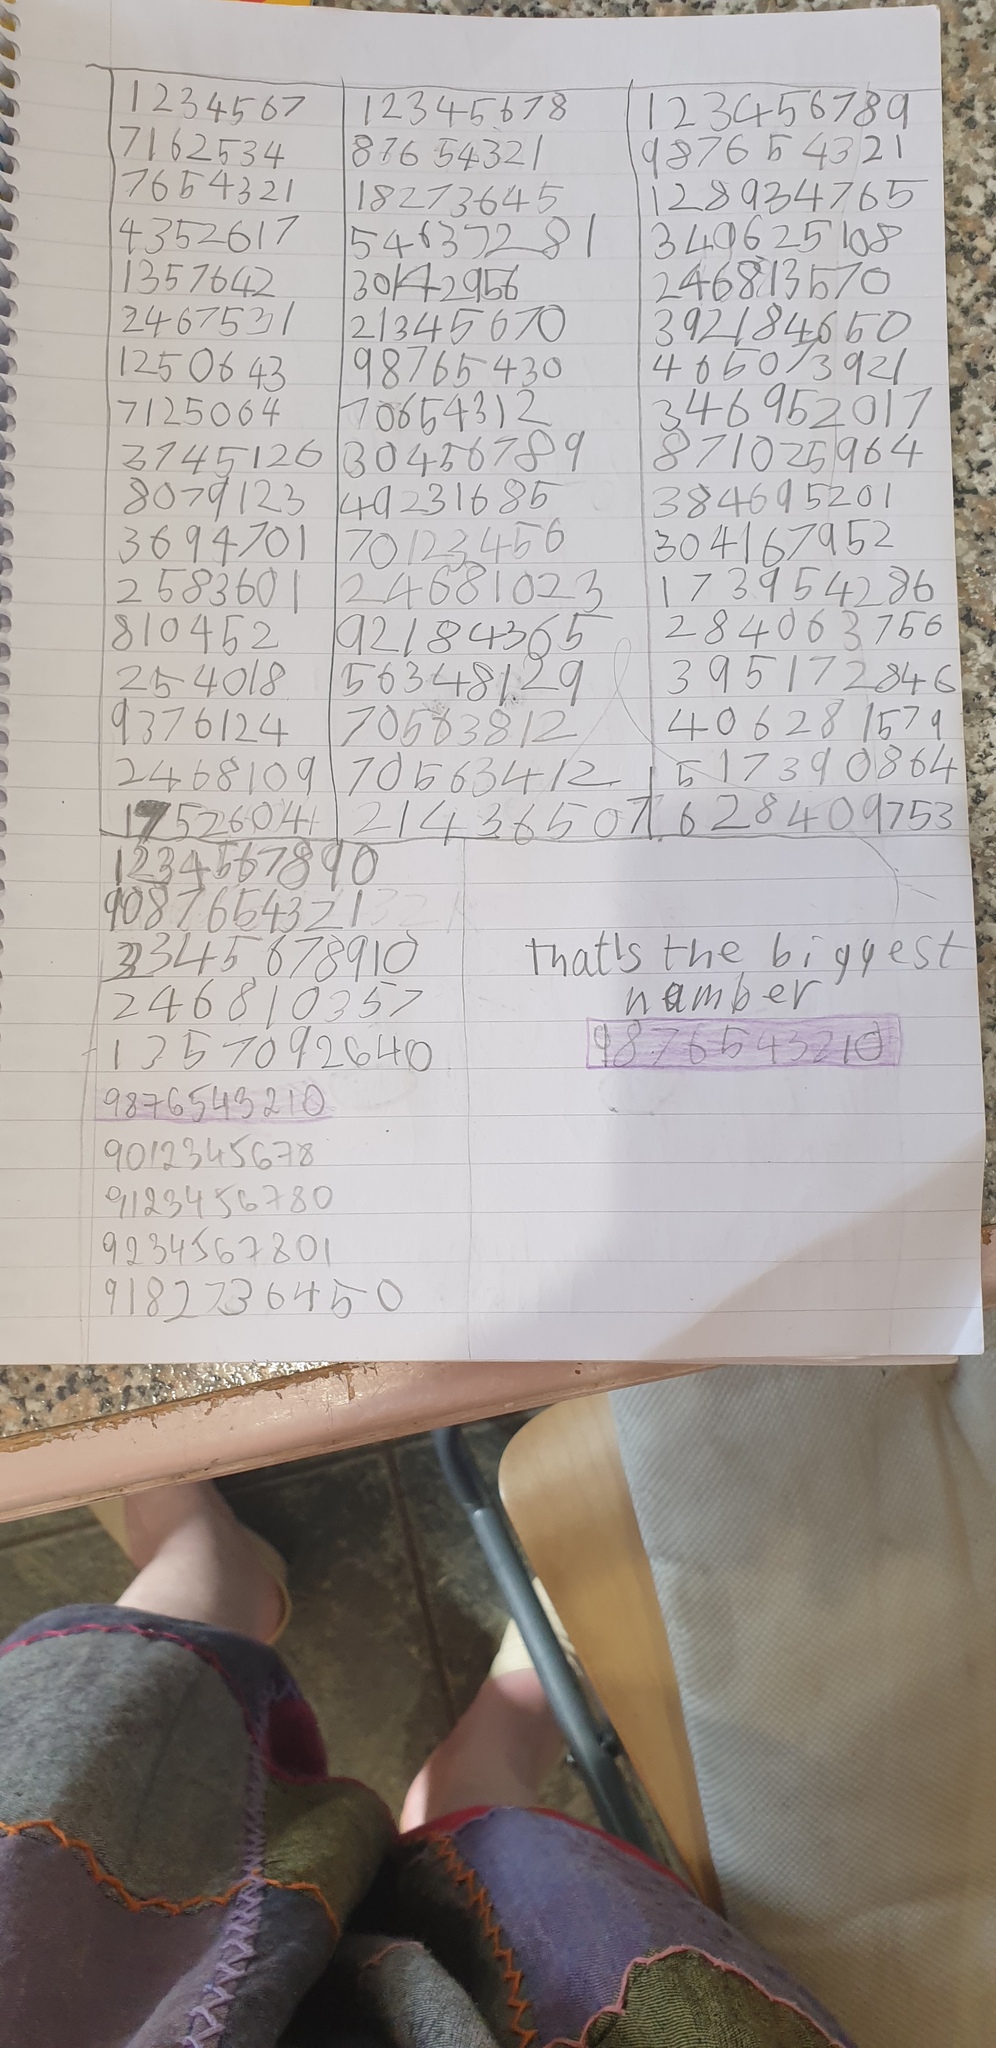 1234567 12345678 123456789
7162534 87654321 987654321
7654321 18273645 128934765
4352617 54637281 349625108
1357642 30142956 246813570
2467531 21345670 392184650
1250643 98765430 465073921
7125064 70654312 346952017
3745126 30456789 871025964
8079123 49231685 384695201
3694701 70123456 304167952
2583601 24681023 173954286
810452 92184365 284063756
254018 56348129 395172846
9376124 70563812 406281579
2468109 70563412 517390864
17526041 21436507 628409753
1234567890
9087654321
2345678910
246810357
1357092640
9876543210
9012345678
9123456780
9234567801
9182736450
that's the biggest
number
9876543210